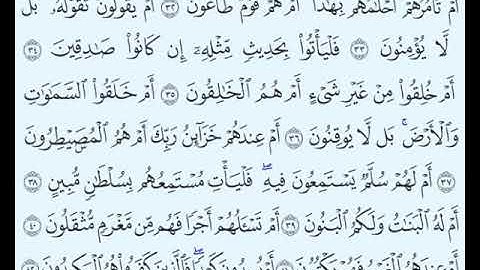 أَمْ تَأْمُرُهُمْ أَحْلَٰمُهُم بِهَٰذَآ ۚ أَمْ هُمْ قَوْمٌ طَاغُونَ ٣٢ أَمْ يَقُولُونَ تَقَوَّلَهُۥ ۚ بَل
لَّا يُؤْمِنُونَ ٣٣ فَلْيَأْتُوا۟ بِحَدِيثٍ مِّثْلِهِۦٓ إِن كَانُوا۟ صَٰدِقِينَ ٣٤
أَمْ خُلِقُوا۟ مِنْ غَيْرِ شَىْءٍ أَمْ هُمُ ٱلْخَٰلِقُونَ ٣٥ أَمْ خَلَقُوا۟ ٱلسَّمَٰوَٰتِ
وَٱلْأَرْضَ ۚ بَل لَّا يُوقِنُونَ ٣٦ أَمْ عِندَهُمْ خَزَآئِنُ رَبِّكَ أَمْ هُمُ ٱلْمُصَۣيْطِرُونَ
٣٧ أَمْ لَهُمْ سُلَّمٌ يَسْتَمِعُونَ فِيهِ ۖ فَلْيَأْتِ مُسْتَمِعُهُم بِسُلْطَٰنٍ مُّبِينٍ ٣٨
أَمْ لَهُ ٱلْبَنَٰتُ وَلَكُمُ ٱلْبَنُونَ ٣٩ أَمْ تَسْـَٔلُهُمْ أَجْرًا فَهُم مِّن مَّغْرَمٍ مُّثْقَلُونَ ٤٠
أَمْ عِندَهُمُ ٱلْغَيْبُ فَهُمْ يَكْتُبُونَ ٤١ أَمْ يُرِيدُونَ كَيْدًا ۖ فَٱلَّذِينَ كَفَرُوا۟ هُمُ ٱلْمَكِيدُونَ ٤٢